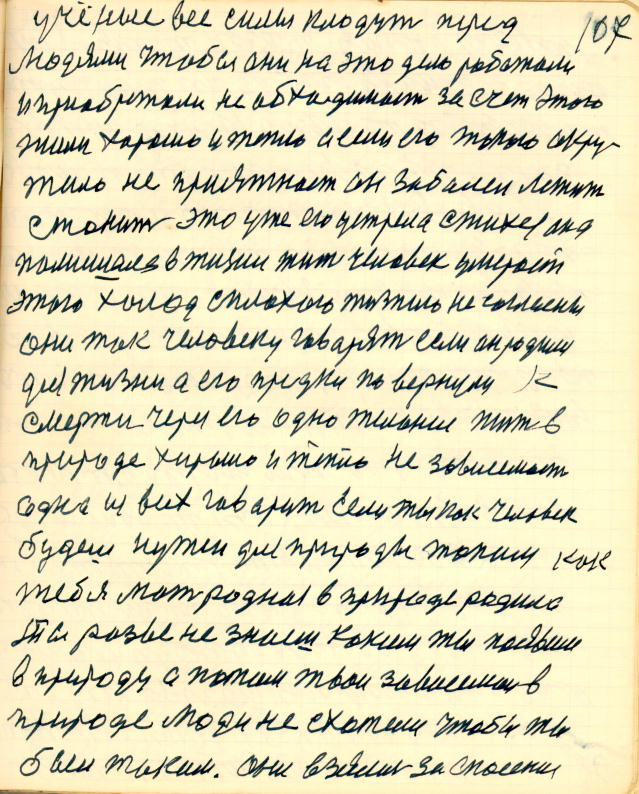 учёные все силы кладут перед 107
людями чтобы они на это дело работали
и приобретали не обходимаст за счет этого
жили хорошо и тепло а если его только окру-
жило не приятност он забалел лежит
стонит это уже его устрела стихея она
в жизни жит человек умерает
этого холод сплохого не согласены
они так человеку гаварят если он родился
для жизни а его предки повернули к
смерти через его одно желание жит в
природе хорошо и тепло не зависемаст
одна из вех гаварит если ты как человек
будеш нужен для природы таким как
тебя мат родная в природе родила
ты разве не знаеш каким ты явился
в природу а потом твои зависемаст в
природе люди не схатели чтобы ты
был таким. они взялис за спасения